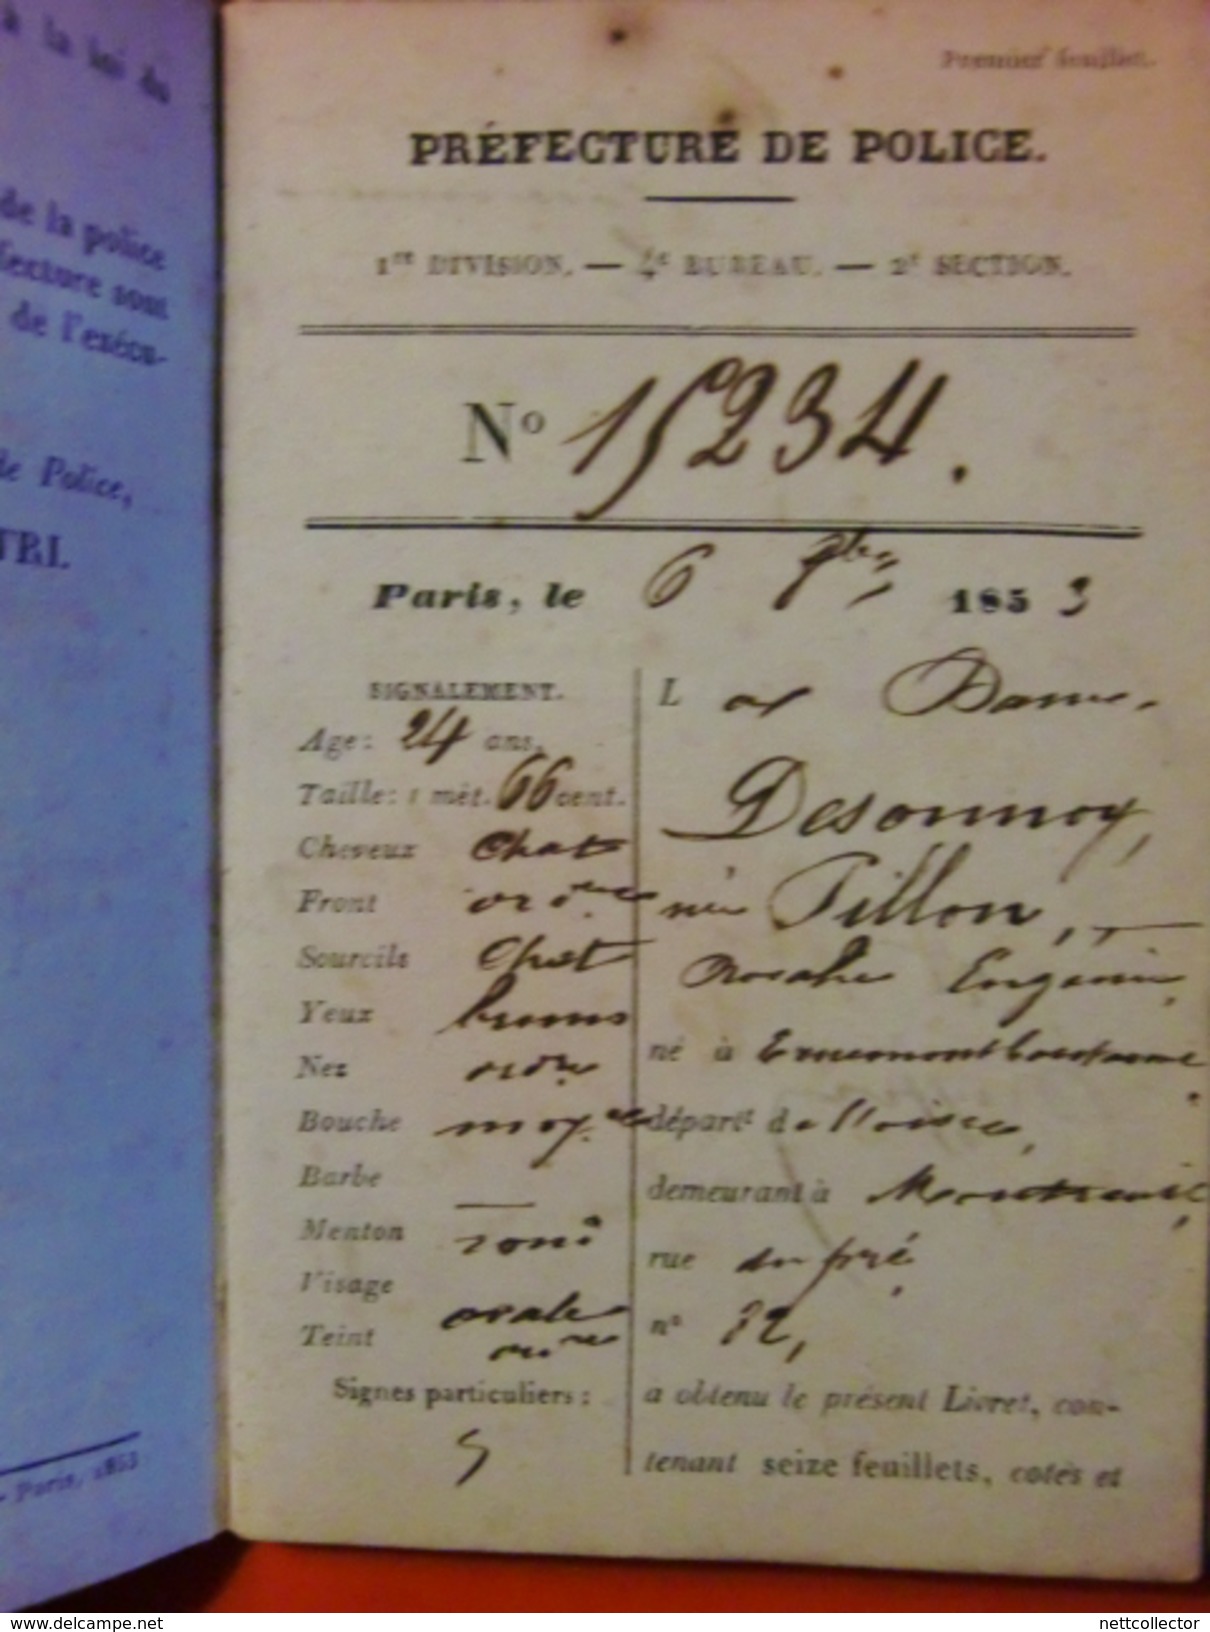 à la loi du
de la police
fecture sont
de l'exécu-
de Police,
TRI.
Paris, 1853
Premier feuillet.
PRÉFECTURE DE POLICE.
1re DIVISION. — 4e BUREAU. — 2e SECTION.
No 15234.
Paris, le 6 7bre 1853
SIGNALEMENT.
Age: 24 ans.
Taille: 1 mèt. 66 cent.
Cheveux Chat
Front ordre
Sourcils Chat
Yeux bruns
Nez ordre
Bouche moy.ne
Barbe —
Menton rond
Visage ovale
Teint
Signes particuliers:
L a Dame
Desonnoy,
née Tillon,
Rosalie Eugénie,
né à
départt de l'oise,
demeurant à Montreuil,
rue du pré,
no 32,
a obtenu le présent Livret, con-
tenant seize feuillets, cotés et
delcampe.net
nettcollector